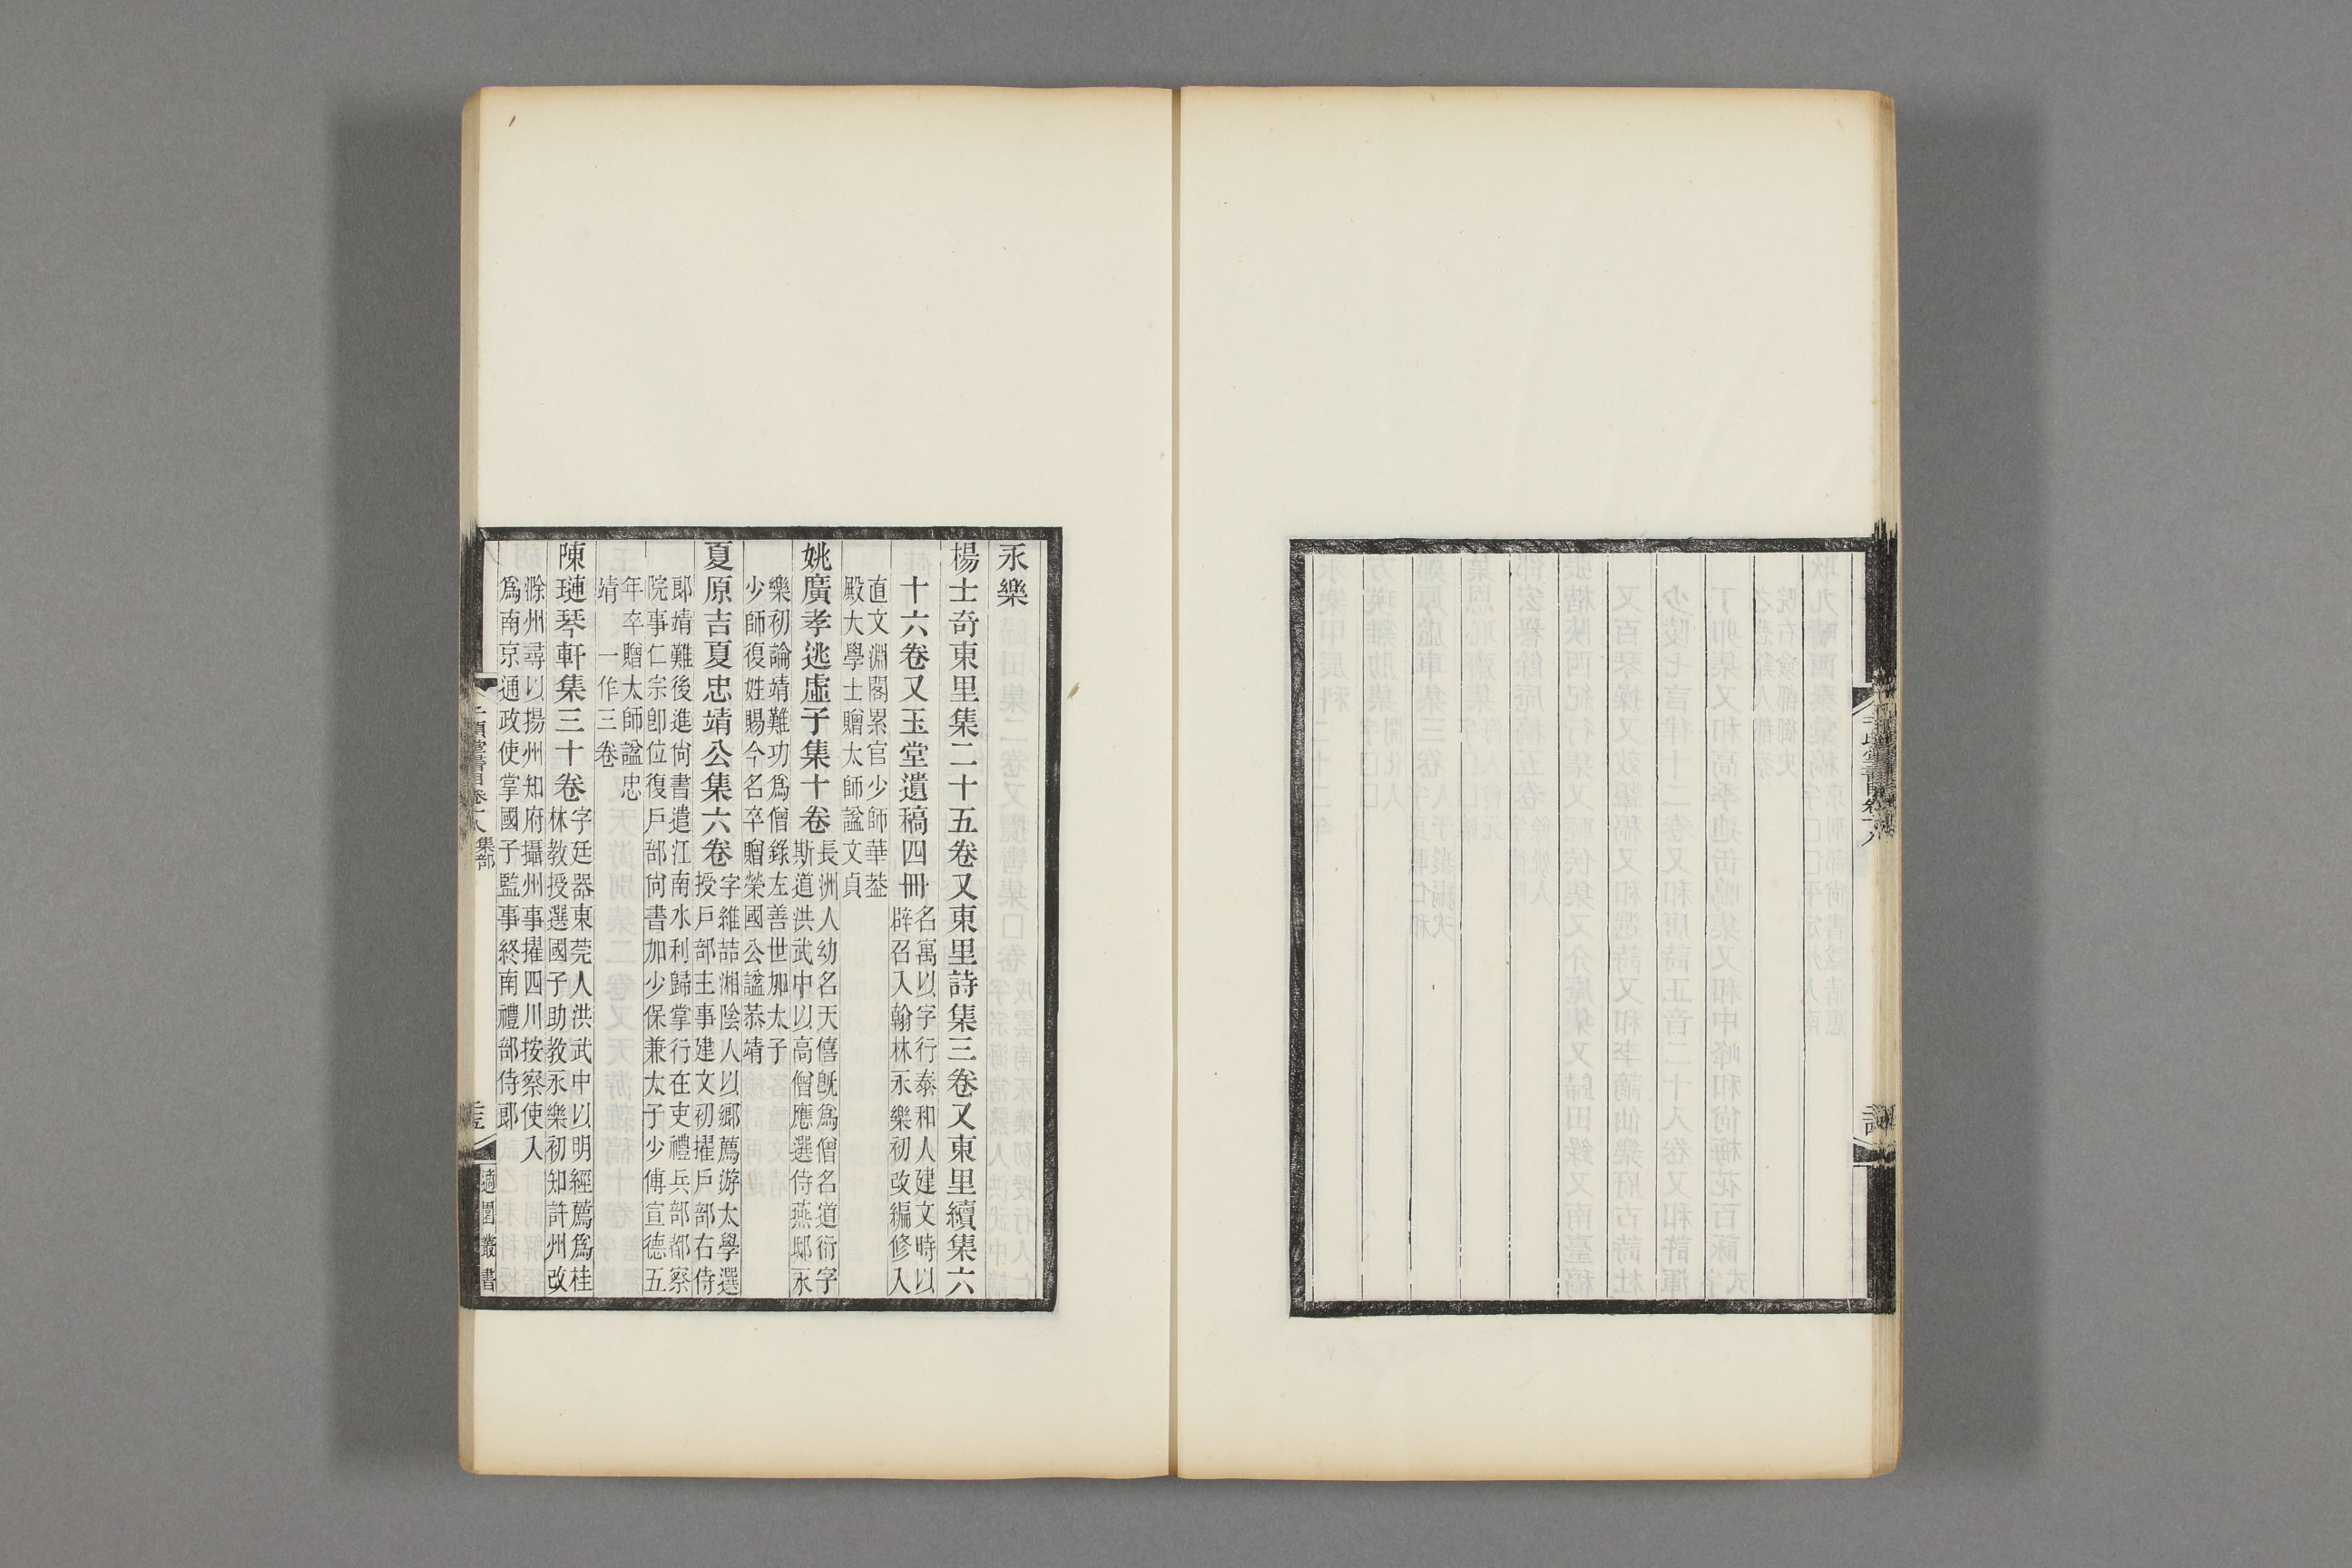 永樂
楊士奇東里集二十五卷又東里詩集三卷又東里續集六
十六卷又玉堂遺稿四冊名寓以字行泰和人建文時以
辟召入翰林永樂初改編修入
直文淵閣累官少師華葢
殿大學士贈太師諡文貞
姚廣孝逃虛子集十卷長洲人幼名天僖旣爲僧名道衍字
斯道洪武中以高僧應選侍燕邸永
樂初論靖難功爲僧錄左善世加太子
少師復姓賜今名卒贈榮國公諡恭靖
夏原吉夏忠靖公集六卷字維喆湘陰人以鄉薦游太學選
授戶部主事建文初擢戶部右侍
郞靖難後進尙書遣江南水利歸掌行在吏禮兵部都察
院事仁宗卽位復戶部尙書加少保兼太子少傅宣德五
年卒贈太師諡忠
靖一作三卷
陳璉琴軒集三十卷字廷器東莞人洪武中以明經薦爲桂
林教授選國子助教永樂初知許州改
滁州尋以揚州知府攝州事擢四川按察使入
爲南京通政使掌國子監事終南禮部侍郞
千頃堂書目卷十八 集部
適園叢書